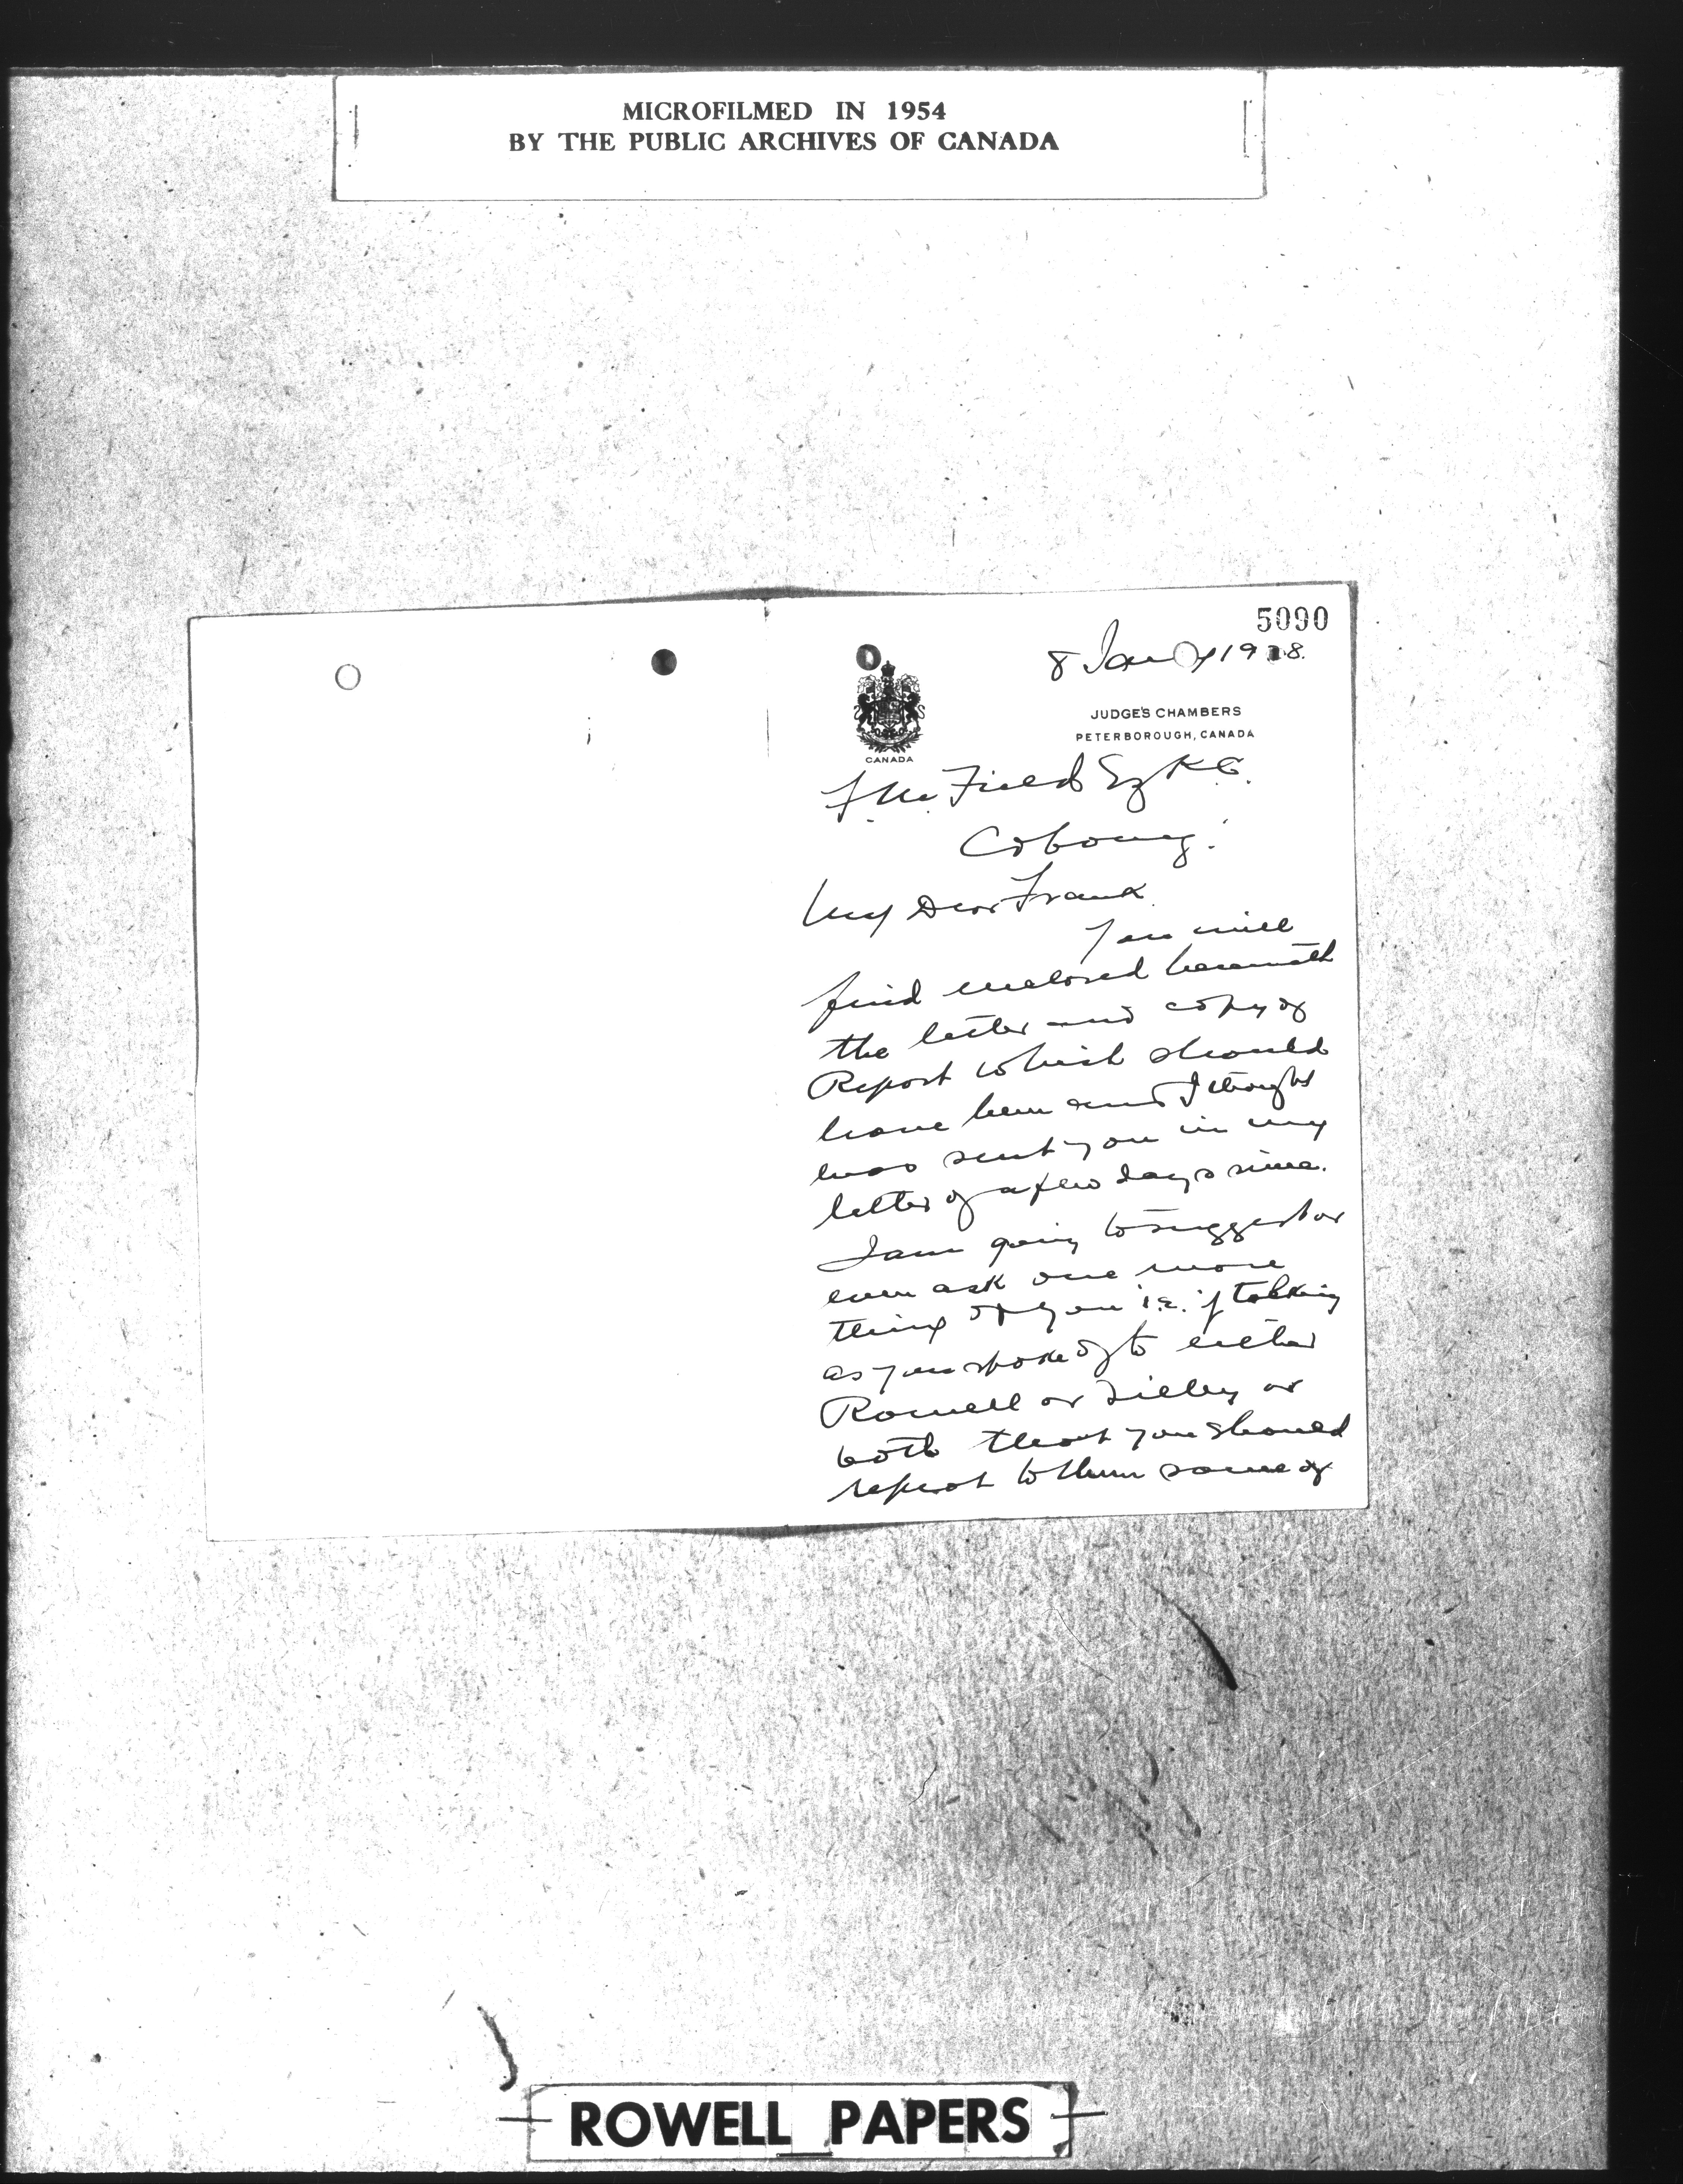 MICROFILMED IN 1954
BY THE PUBLIC ARCHIVES OF CANADA
5090
8 Jany 1918.
JUDGE'S CHAMBERS
PETERBOROUGH, CANADA
CANADA
F. M. Field Esq K.C.
Cobourg.
My Dear Frank
You will
find enclosed herewith
the letter and copy of
Report which should
have been and I thought
was sent you in my
letter of a few days since.
I am going to suggest or
even ask one more
thing of you i.e. if talking
as you spoke of to either
Rowell or Tilley or
both that you should
repeat to them some of
ROWELL PAPERS